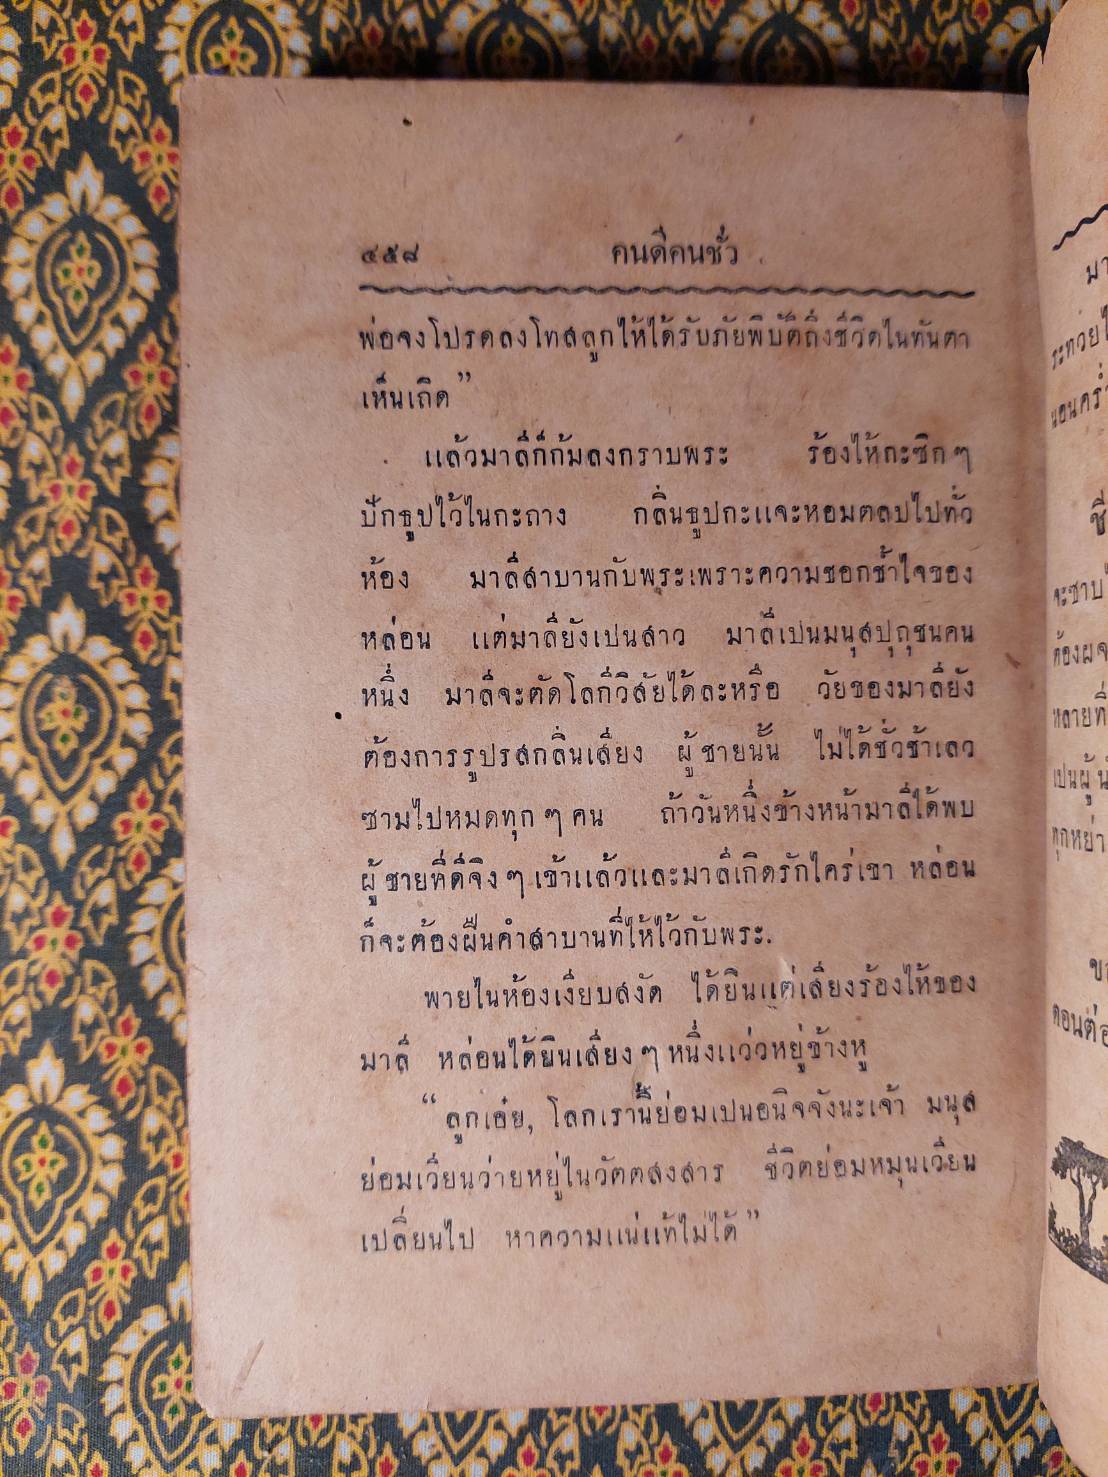 ๔๕๘ คนดีคนชั่ว
พ่อจงโปรดลงโทสลูกไห้ได้รับภัยพิบัติถึงชีวิตไนทันตา
เห็นเถิด”
แล้วมาลีก็ก้มลงกราบพระ ร้องไห้กะซิก ๆ
ปักธูปไว้ไนกะถาง กลิ่นธูปกะแจะหอมตลบไปทั่ว
ห้อง มาลีสาบานกับพระเพราะความชอกช้ำไจของ
หล่อน แต่มาลียังเปนสาว มาลีเปนมนุสปุถุชนคน
หนึ่ง มาลีจะตัดโลกีวิสัยได้ละหรือ วัยของมาลียัง
ต้องการรูปรสกลิ่นเสียง ผู้ชายนั้น ไม่ได้ชั่วช้าเลว
ซามไปหมดทุก ๆ คน ถ้าวันหนึ่งข้างหน้ามาลีได้พบ
ผู้ชายที่ดีจิง ๆ เข้าแล้วและมาลีเกิดรักไคร่เขา หล่อน
ก็จะต้องฝืนคำสาบานที่ไห้ไว้กับพระ.
พายไนห้องเงียบสงัด ได้ยินแต่เสียงร้องไห้ของ
มาลี หล่อนได้ยินเสียง ๆ หนึ่งแว่วหยู่ข้างหู
“ลูกเอ๋ย, โลกเรานี้ย่อมเปนอนิจจังนะเจ้า มนุส
ย่อมเวียนว่ายหยู่ไนวัตตสงสาร ชีวิตย่อมหมุนเวียน
เปลี่ยนไป หาความแน่แท้ไม่ได้”
มา
ระทวยไ
นอนคร่ำ
ชี
จะซาบ
ต้องผจ
หลายที่
เปนผู้นำ
ทุกหย่า
ตอนต่อ